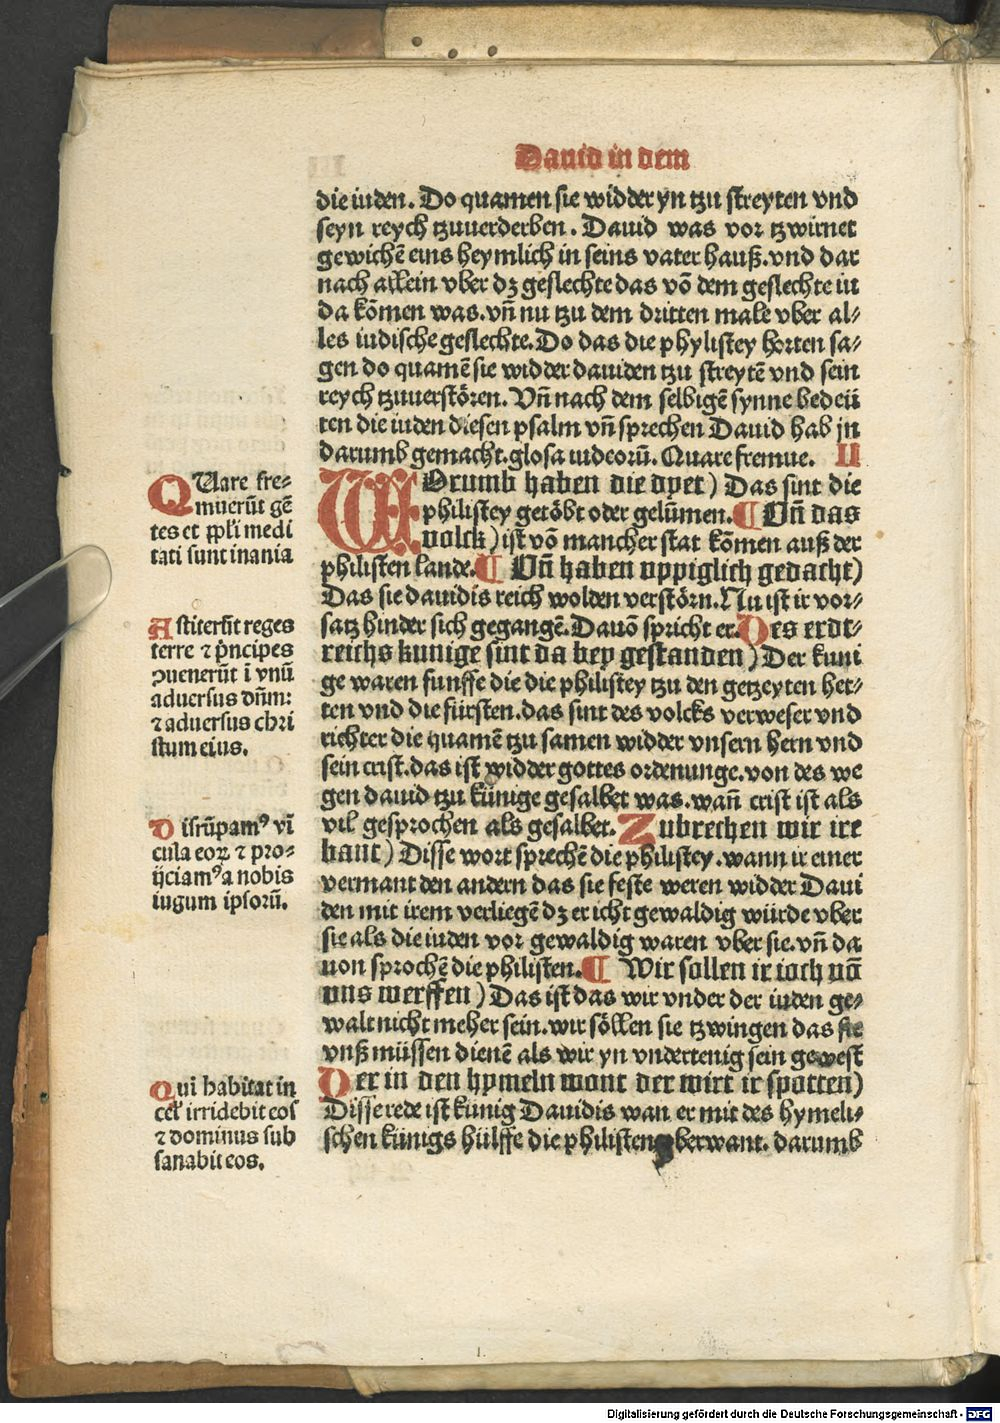 Dauid in dem
die iuden. Do quamen sie widder yn tzu streyten vnd
seyn reych tzuuerderben. Dauid was vor tzwirnet
gewichē eins heymlich in seins vater hauß. vnd dar
nach allein vber dz geslechte das vō dem geslechte iu
da kōmen was. vn̄ nu tzu dem dritten male vber al⸗
les iudische geslechte. Do das die phylistey horten sa⸗
gen do quamē sie widder dauiden tzu streytē vnd sein
reych tzuuerstören. Vn̄ nach dem selbigē synne bedeü
ten die iuden diesen psalm vn̄ sprechen Dauid hab jn
darumb gemacht. glosa iudeorū. Quare fremue. II
WOrumb haben die dyet) Das sint die
philistey getöbt oder gelümen. ¶ Vn̄ das
volck) ist vō mancher stat kōmen auß der
philisten lande. ¶ Vn̄ haben vppiglich gedacht)
Das sie dauidis reich wolden verstörn. Nu ist ir vor⸗
satz hinder sich gegangē. Dauō spricht er. Des erdt⸗
reichs kunige sint da bey gestanden) Der kuni
ge waren funffe die die philistey tzu den getzeyten het⸗
ten vnd die fürsten. das sint des volcks verweser vnd
richter die quamē tzu samen widder vnsern hern vnd
sein crist. das ist widder gottes ordenunge. von des we
gen dauid tzu künige gesalbet was. wan̄ crist ist als
vil gesprochen als gesalbet. Zubrechen wir ire
bant) Disse wort sprechē die philistey. wann ir einer
vermant den andern das sie feste weren widder Daui
den mit irem verliegē dz er icht gewaldig würde vber
sie als die iuden vor gewaldig waren vber sie. vn̄ da
uon sprochē die philisten. ¶ Wir sollen ir ioch vō
vns werffen) Das ist das wir vnder der iuden ge⸗
walt nicht meher sein. wir söllen sie tzwingen das sie
vnß müssen dienē als wir yn vndertenig sein gewest
Der in den hymeln wont der wirt ir spotten)
Disse rede ist künig Dauidis wan er mit des hymeli⸗
schen künigs hülffe die philisten vberwant. darumb
QUare fre⸗
muerūt gē
tes et ppl'i medi
tati sunt inania
Astiterūt reges
terre ⁊ p̄ncipes
ꝯuenerūt ī vnū
aduersus dn̄m:
⁊ aduersus chri
stum eius.
Disrūpamꝰ vī
cula eoꝝ ⁊ pro⸗
ijciamꝰ a nobis
iugum ipsorū.
Qui habitat in
cel' irridebit eos
⁊ dominus sub
sanabit eos.
Digitalisierung gefördert durch die Deutsche Forschungsgemeinschaft - DFG